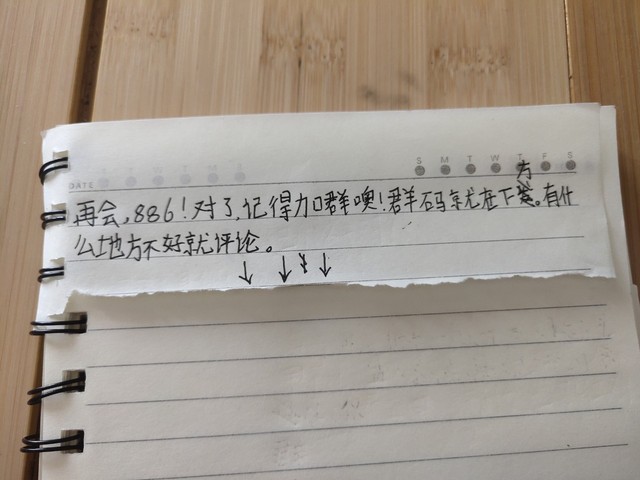 DATE
S M T W T F S
再会,886!对了,记得加群噢!群码就在下方。有什
么地方不好就评论。
↓ ↓ ↓